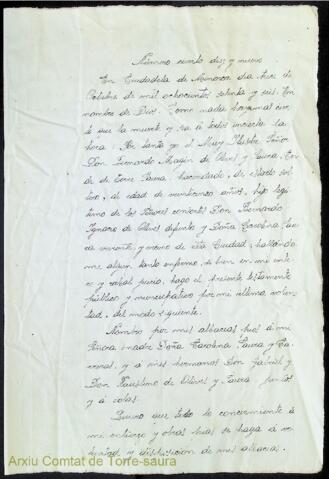 Número ciento diez y nueve
En Ciudadela de Menorca dia trece de
Octubre de mil ochocientos setenta y seis. En
nombre de Dios. Como nada hay mas cier
to que la muerte y sea á todos incierta la
hora: Por tanto yo el Muy Ilustre Señor
Don Fernando Magin de Olives y Saura, Con
de de Torre Saura, hacendado, de estado sol
tero, de edad de veinticinco años, hijo legi
timo de los Ilustres consortes Don Bernardo
Ignacio de Olives difunto y Doña Carolina Sau
ra viviente, y vecino de esta Ciudad, hallando
me algun tanto enfermo, si bien en mi ente
ro y cabal juicio, hago el presente testamento
público y nuncupativo por mi última volun
tad, del modo siguiente.
Nombro por mis albaceas á mi
Señora madre Doña Carolina Saura y Ca
rreras, y á mis hermanos Don Gabriel y
Don Faustino de Olives y Saura juntos
y á solas.
Quiero que todo lo concerniente á
mi entierro y obras pias se haga á vo
luntad y disposicion de mis albaceas.
Arxiu Comtat de Torre-saura